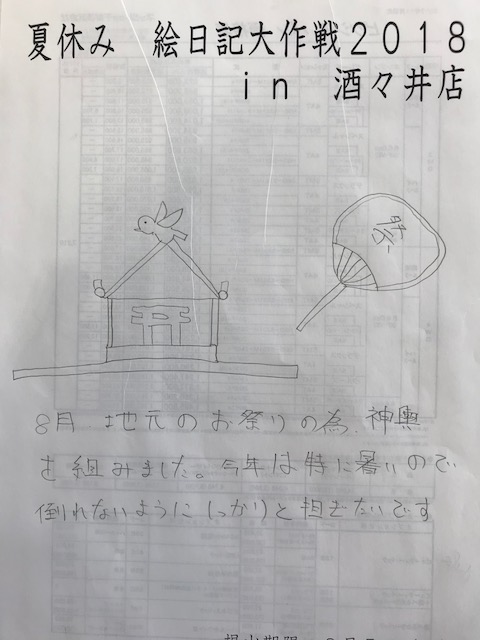 夏休み 絵日記大作戦2018
in 酒々井店
8月 地元のお祭りの為、神輿
を組みました。今年は特に暑いので
倒れないようにしっかりと担ぎたいです